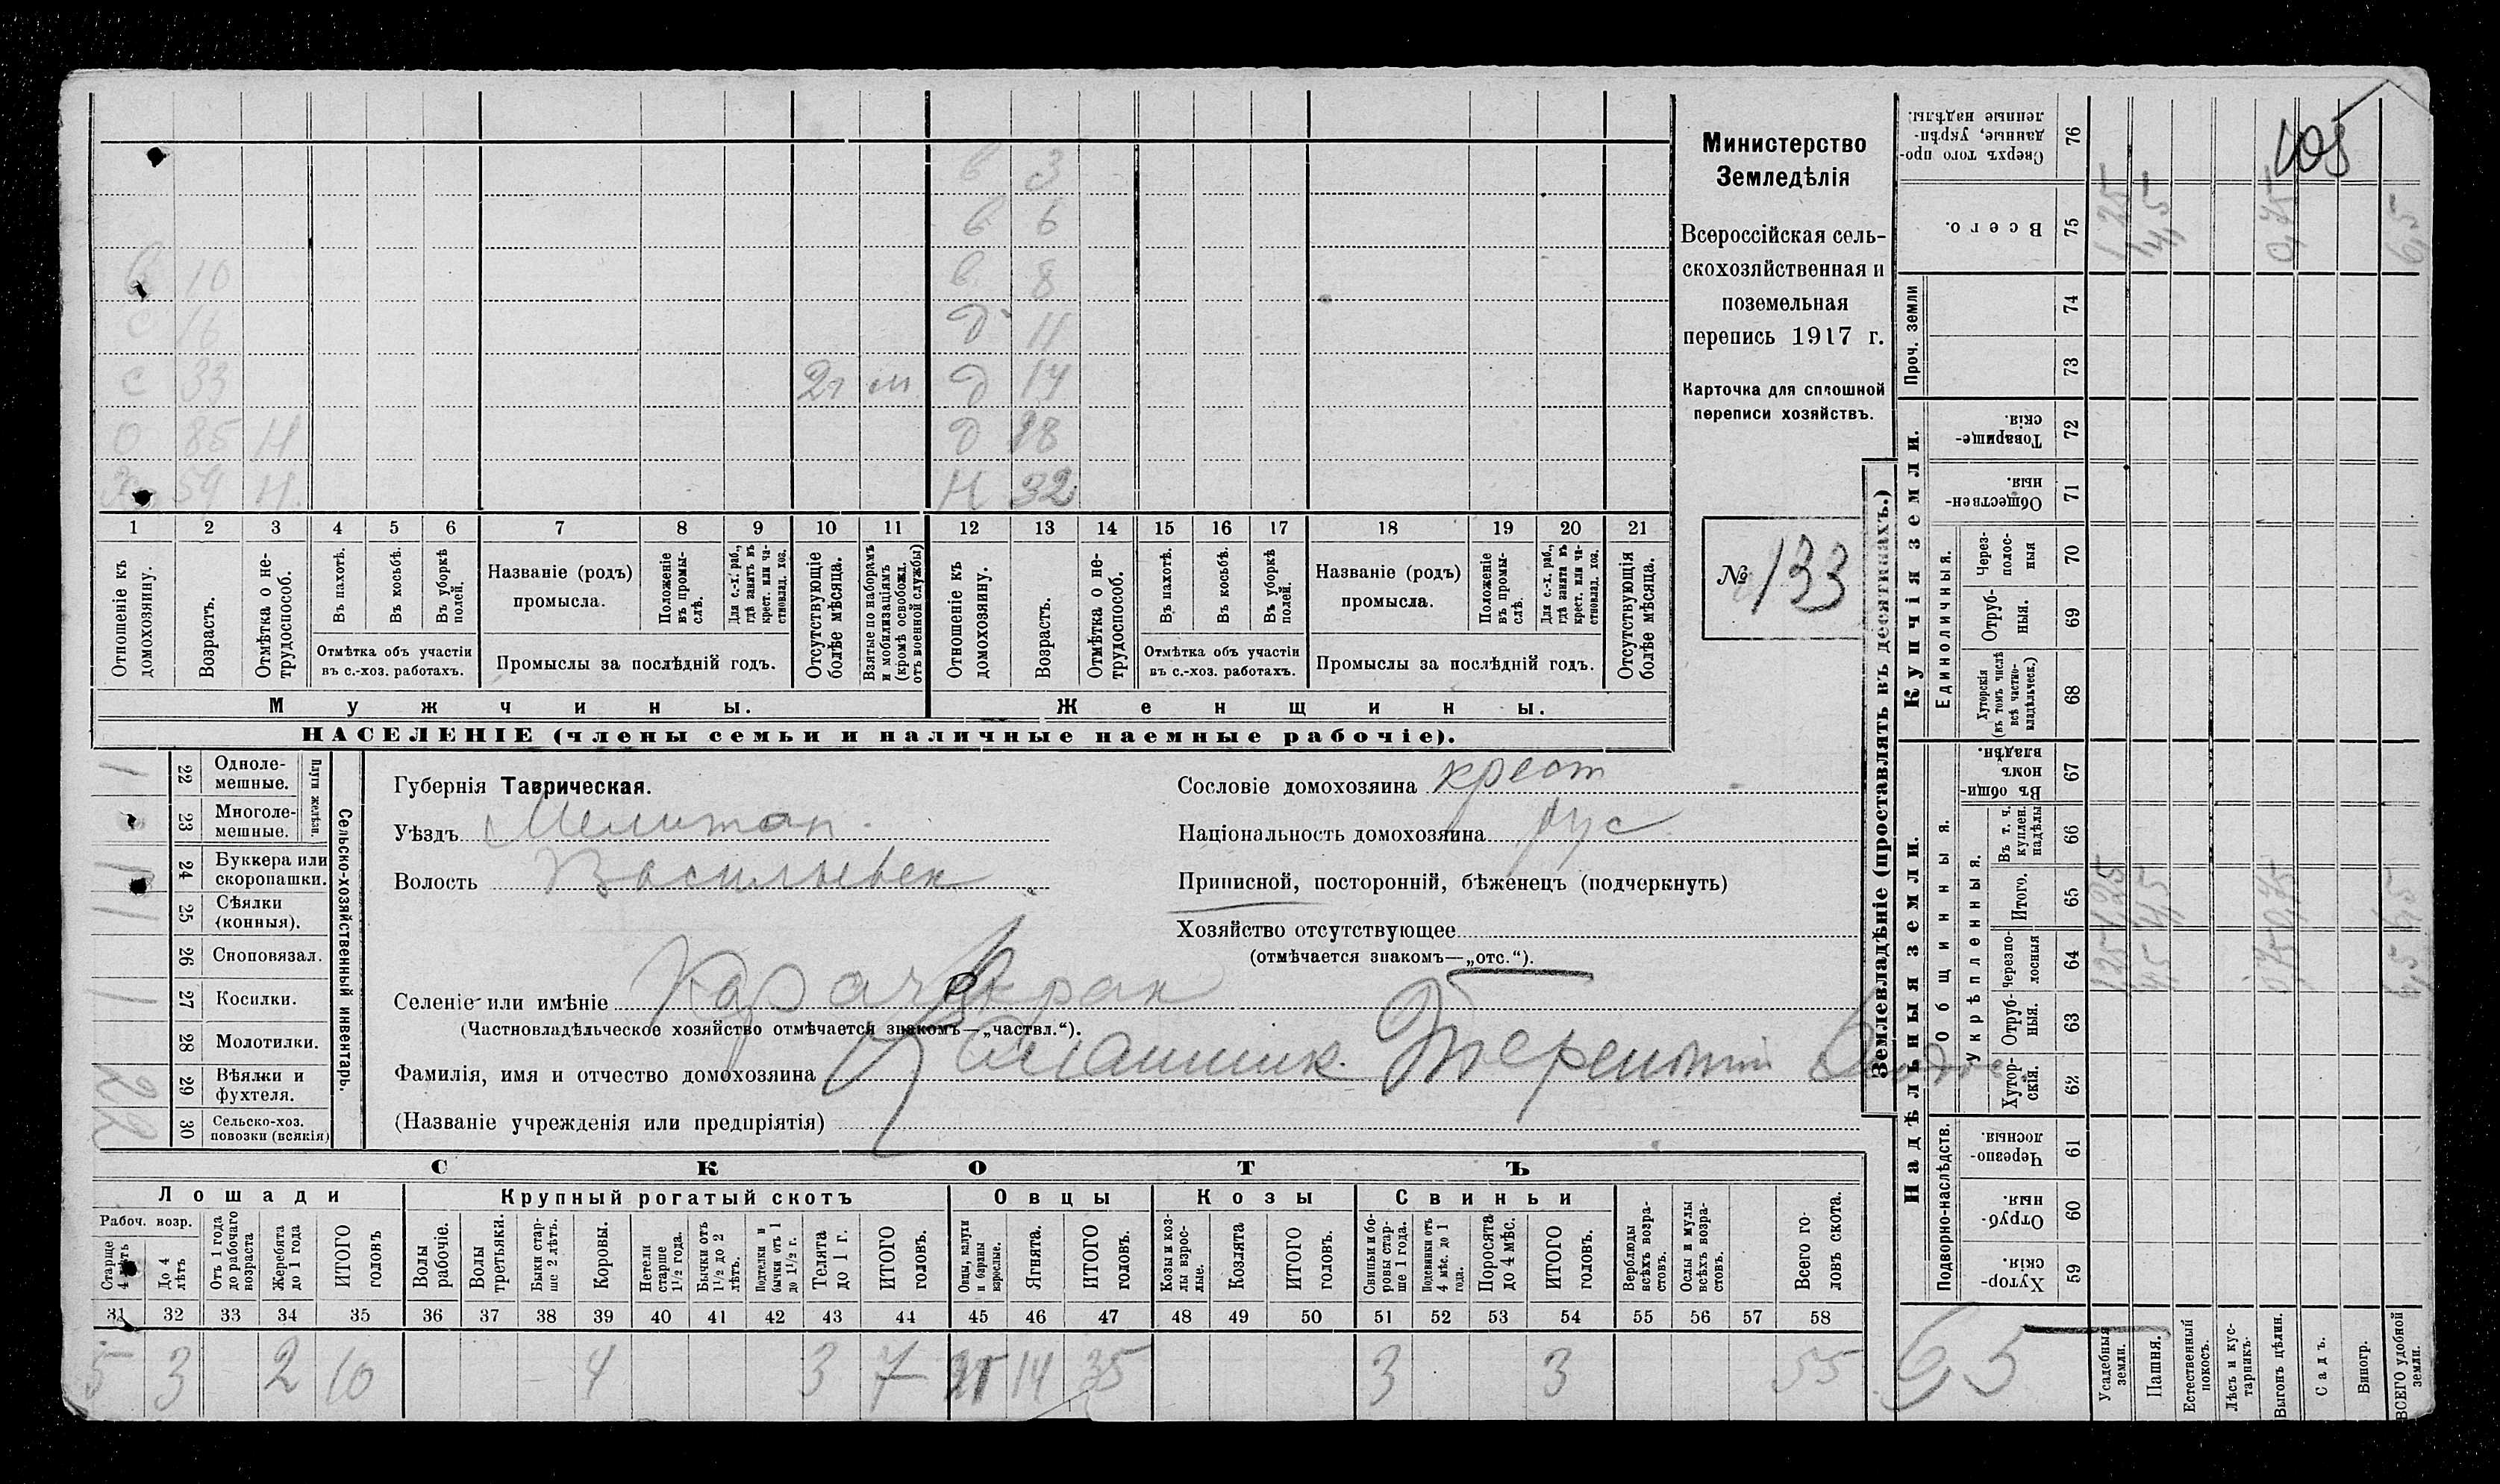 Министерство
Земледѣлія
Всероссійская сель-
скохозяйственная и
поземельная
перепись 1917 г.
Карточка для сплошной
переписи хозяйствъ.
№ 133
105
в 3
в 6
в 10 в 8
с 16 д 11
с 33 2г м д 14
о 85 н д 18
59 н. н 32
1 2 3 4 5 6 7 8 9 10 11 12 13 14 15 16 17 18 19 20 21
Отношеніе къ домохозяину.
Возрастъ.
Отмѣтка о не-трудоспособ.
Въ пахотѣ.
Въ косьбѣ.
Въ уборкѣ полей.
Отмѣтка объ участіи
въ с.-хоз. работахъ.
Названіе (родъ)
промысла.
Положеніе въ промы-слѣ.
Для с.-х. раб., гдѣ занятъ въ крест. или ча-стновлад. хоз.
Промыслы за послѣдній годъ.
Отсутствующіе болѣе мѣсяца.
Взятые по наборамъ и мобилизаціямъ (кромѣ освобожд. отъ военной службы)
Отношеніе къ домохозяину.
Возрастъ.
Отмѣтка о не-трудоспособ.
Въ пахотѣ.
Въ косьбѣ.
Въ уборкѣ полей.
Отмѣтка объ участіи
въ с.-хоз. работахъ.
Названіе (родъ)
промысла.
Положеніе въ промы-слѣ.
Для с.-х. раб., гдѣ занята въ крест. или ча-стновлад. хоз.
Промыслы за послѣдній годъ.
Отсутствующія болѣе мѣсяца.
Мужчины. Женщины.
НАСЕЛЕНІЕ (члены семьи и наличные наемные рабочіе).
Сельско-хозяйственный инвентарь.
Плуги желѣзн.
22 Одноле-мешные. 1
23 Многоле-мешные.
24 Буккера или скоропашки. 1
25 Сѣялки (конныя). 1
26 Сноповязал.
27 Косилки. 1
28 Молотилки.
29 Вѣялки и фухтеля. 2
30 Сельско-хоз. повозки (всякія) 2
Губернія Таврическая.
Уѣздъ Мелитоп.
Волость Васильевск
Селеніе или имѣніе Карачекрак
(Частновладѣльческое хозяйство отмѣчается знакомъ—„частвл.“).
Фамилія, имя и отчество домохозяина Терентій
(Названіе учрежденія или предпріятія)
Сословіе домохозяина крест
Національность домохозяина рус
Приписной, посторонній, бѣженецъ (подчеркнуть)
Хозяйство отсутствующее
(отмѣчается знакомъ—„отс.“).
СКОТЪ
Лошади Крупный рогатый скотъ Овцы Козы Свиньи
Рабоч. возр.
Старше 4 лѣтъ
До 4 лѣтъ
Отъ 1 года до рабочаго возраста
Жеребята до 1 года
ИТОГО головъ
Волы рабочіе.
Волы третьяки.
Быки стар-ше 2 лѣтъ.
Коровы.
Нетели старше 1½ года.
Бычки отъ 1½ до 2 лѣтъ.
Подтелки и бычки отъ 1 до 1½ г.
Телята до 1 г.
ИТОГО головъ.
Овцы, валухи и бараны взрослые.
Ягнята.
ИТОГО головъ.
Козы и коз-лы взрос-лые.
Козлята
ИТОГО головъ.
Свиньи и бо-ровы стар-ше 1 года.
Подсвинки отъ 4 мѣс. до 1 года.
Поросята до 4 мѣс.
ИТОГО головъ.
Верблюды всѣхъ возра-стовъ.
Ослы и мулы всѣхъ возра-стовъ.
Всего го-ловъ скота.
31 32 33 34 35 36 37 38 39 40 41 42 43 44 45 46 47 48 49 50 51 52 53 54 55 56 57 58
5 3 2 10 4 3 7 21 14 35 3 3 55
6,5
Землевладѣніе (проставлять въ десятинахъ.)
Надѣльныя земли. Купчія земли. Проч. земли
Подворно-наслѣдств. Общинныя. Укрѣпленныя. Единоличныя.
59 Хутор-скія.
60 Отруб-ныя.
61 Черезпо-лосныя.
62 Хутор-скія.
63 Отруб-ныя.
64 Черезпо-лосныя 1,25 4,5 0,75 6,5
65 Итого. 1,25 4,5 0,75 6,5
66 Въ т. ч. куплен. надѣлы
67 Въ общин-номъ владѣн.
68 Хуторскія (въ томъ числѣ всѣ частно-владѣльческ.)
69 Отруб-ныя.
70 Через-полос-ныя
71 Обществен-ныя.
72 Товарище-скія.
73
74
75 Всего. 1,25 4,5 0,75 6,5
76 Сверхъ того про-данные, укрѣп-ленные надѣлы.
Усадебныя земли.
Пашня.
Естественный покосъ.
Лѣсъ и кус-тарникъ.
Выгонъ цѣлин.
Садъ.
Виногр.
ВСЕГО удобной земли.